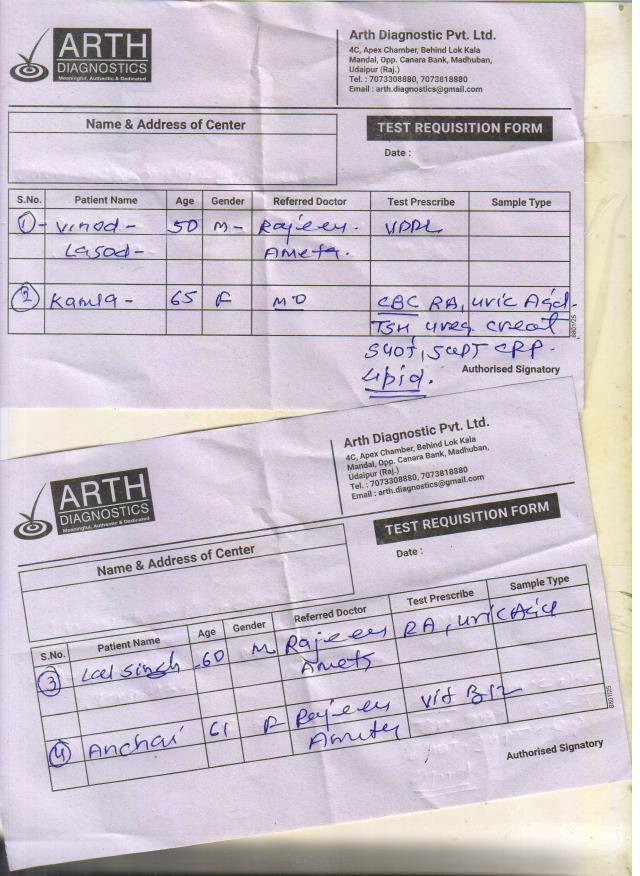 ARTH
DIAGNOSTICS
Meaningful, Authentic & Dedicated
Arth Diagnostic Pvt. Ltd.
4C, Apex Chamber, Behind Lok Kala
Mandal, Opp. Canara Bank, Madhuban,
Udaipur (Raj.)
Tel. : 7073308880, 7073818880
Email : arth.diagnostics@gmail.com
Name & Address of Center
TEST REQUISITION FORM
Date :
S.No. Patient Name Age Gender Referred Doctor Test Prescribe Sample Type
1 - Vinod - 50 M - Rajeev. VDRL
Lasod - Ameta.
2 Kamla - 65 F MD CBC RA, Uric Acid -
TSH Urea, creat
SGOT, SGPT CRP.
Lipid.
8801/25
Authorised Signatory
ARTH
DIAGNOSTICS
Meaningful, Authentic & Dedicated
Arth Diagnostic Pvt. Ltd.
4C, Apex Chamber, Behind Lok Kala
Mandal, Opp. Canara Bank, Madhuban,
Udaipur (Raj.)
Tel. : 7073308880, 7073818880
Email : arth.diagnostics@gmail.com
Name & Address of Center
TEST REQUISITION FORM
Date :
S.No. Patient Name Age Gender Referred Doctor Test Prescribe Sample Type
3 Lal Singh 60 M Rajeev RA, Uric Acid
Ameta
4 Anchai 61 F Rajeev Vit B12
Ameta
8801/25
Authorised Signatory